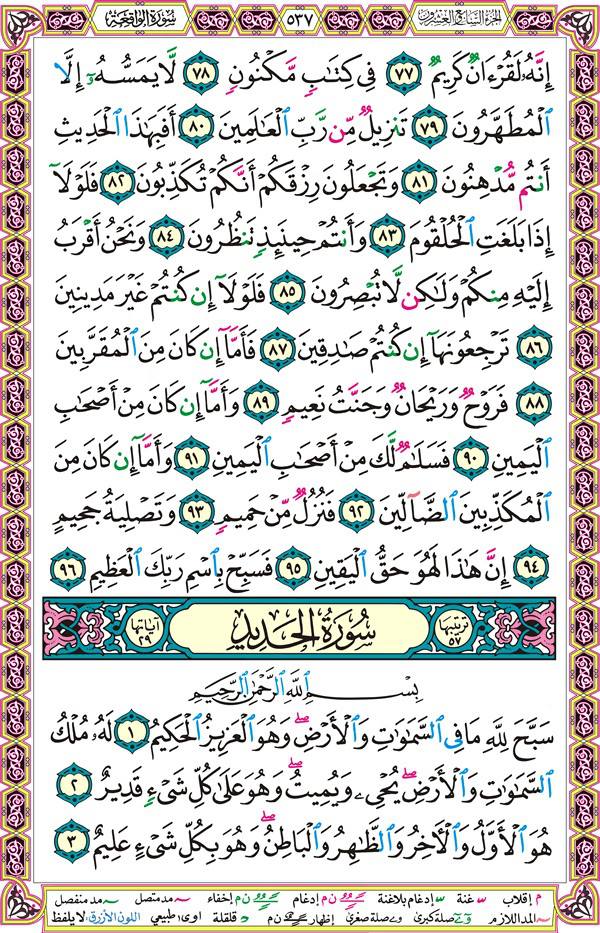 سُورَةُ الوَاقِعَة ٥٣٧ الجُزْءُ السَّابِعُ وَالعِشْرُون
إِنَّهُۥ لَقُرْءَانٌ كَرِيمٌ ٧٧ فِى كِتَٰبٍ مَّكْنُونٍ ٧٨ لَّا يَمَسُّهُۥٓ إِلَّا
ٱلْمُطَهَّرُونَ ٧٩ تَنزِيلٌ مِّن رَّبِّ ٱلْعَٰلَمِينَ ٨٠ أَفَبِهَٰذَا ٱلْحَدِيثِ
أَنتُم مُّدْهِنُونَ ٨١ وَتَجْعَلُونَ رِزْقَكُمْ أَنَّكُمْ تُكَذِّبُونَ ٨٢ فَلَوْلَآ
إِذَا بَلَغَتِ ٱلْحُلْقُومَ ٨٣ وَأَنتُمْ حِينَئِذٍ تَنظُرُونَ ٨٤ وَنَحْنُ أَقْرَبُ
إِلَيْهِ مِنكُمْ وَلَٰكِن لَّا تُبْصِرُونَ ٨٥ فَلَوْلَآ إِن كُنتُمْ غَيْرَ مَدِينِينَ
٨٦ تَرْجِعُونَهَآ إِن كُنتُمْ صَٰدِقِينَ ٨٧ فَأَمَّآ إِن كَانَ مِنَ ٱلْمُقَرَّبِينَ
٨٨ فَرَوْحٌ وَرَيْحَانٌ وَجَنَّتُ نَعِيمٍ ٨٩ وَأَمَّآ إِن كَانَ مِنْ أَصْحَٰبِ
ٱلْيَمِينِ ٩٠ فَسَلَٰمٌ لَّكَ مِنْ أَصْحَٰبِ ٱلْيَمِينِ ٩١ وَأَمَّآ إِن كَانَ مِنَ
ٱلْمُكَذِّبِينَ ٱلضَّآلِّينَ ٩٢ فَنُزُلٌ مِّنْ حَمِيمٍ ٩٣ وَتَصْلِيَةُ جَحِيمٍ
٩٤ إِنَّ هَٰذَا لَهُوَ حَقُّ ٱلْيَقِينِ ٩٥ فَسَبِّحْ بِٱسْمِ رَبِّكَ ٱلْعَظِيمِ ٩٦
ترتيبها ٥٧ سُورَةُ الحَدِيدِ آياتها ٢٩
بِسْمِ ٱللَّهِ ٱلرَّحْمَٰنِ ٱلرَّحِيمِ
سَبَّحَ لِلَّهِ مَا فِى ٱلسَّمَٰوَٰتِ وَٱلْأَرْضِ ۖ وَهُوَ ٱلْعَزِيزُ ٱلْحَكِيمُ ١ لَهُۥ مُلْكُ
ٱلسَّمَٰوَٰتِ وَٱلْأَرْضِ ۖ يُحْىِۦ وَيُمِيتُ ۖ وَهُوَ عَلَىٰ كُلِّ شَىْءٍ قَدِيرٌ ٢
هُوَ ٱلْأَوَّلُ وَٱلْءَاخِرُ وَٱلظَّٰهِرُ وَٱلْبَاطِنُ ۖ وَهُوَ بِكُلِّ شَىْءٍ عَلِيمٌ ٣
م إقلاب غنة إدغام بلاغنة ن م إدغام ن م إخفاء مد متصل مد منفصل
المد اللازم صلة كبرى صلة صغرى إظهار ن م قلقلة اوى طبيعي اللون الأزرق: لا يلفظ